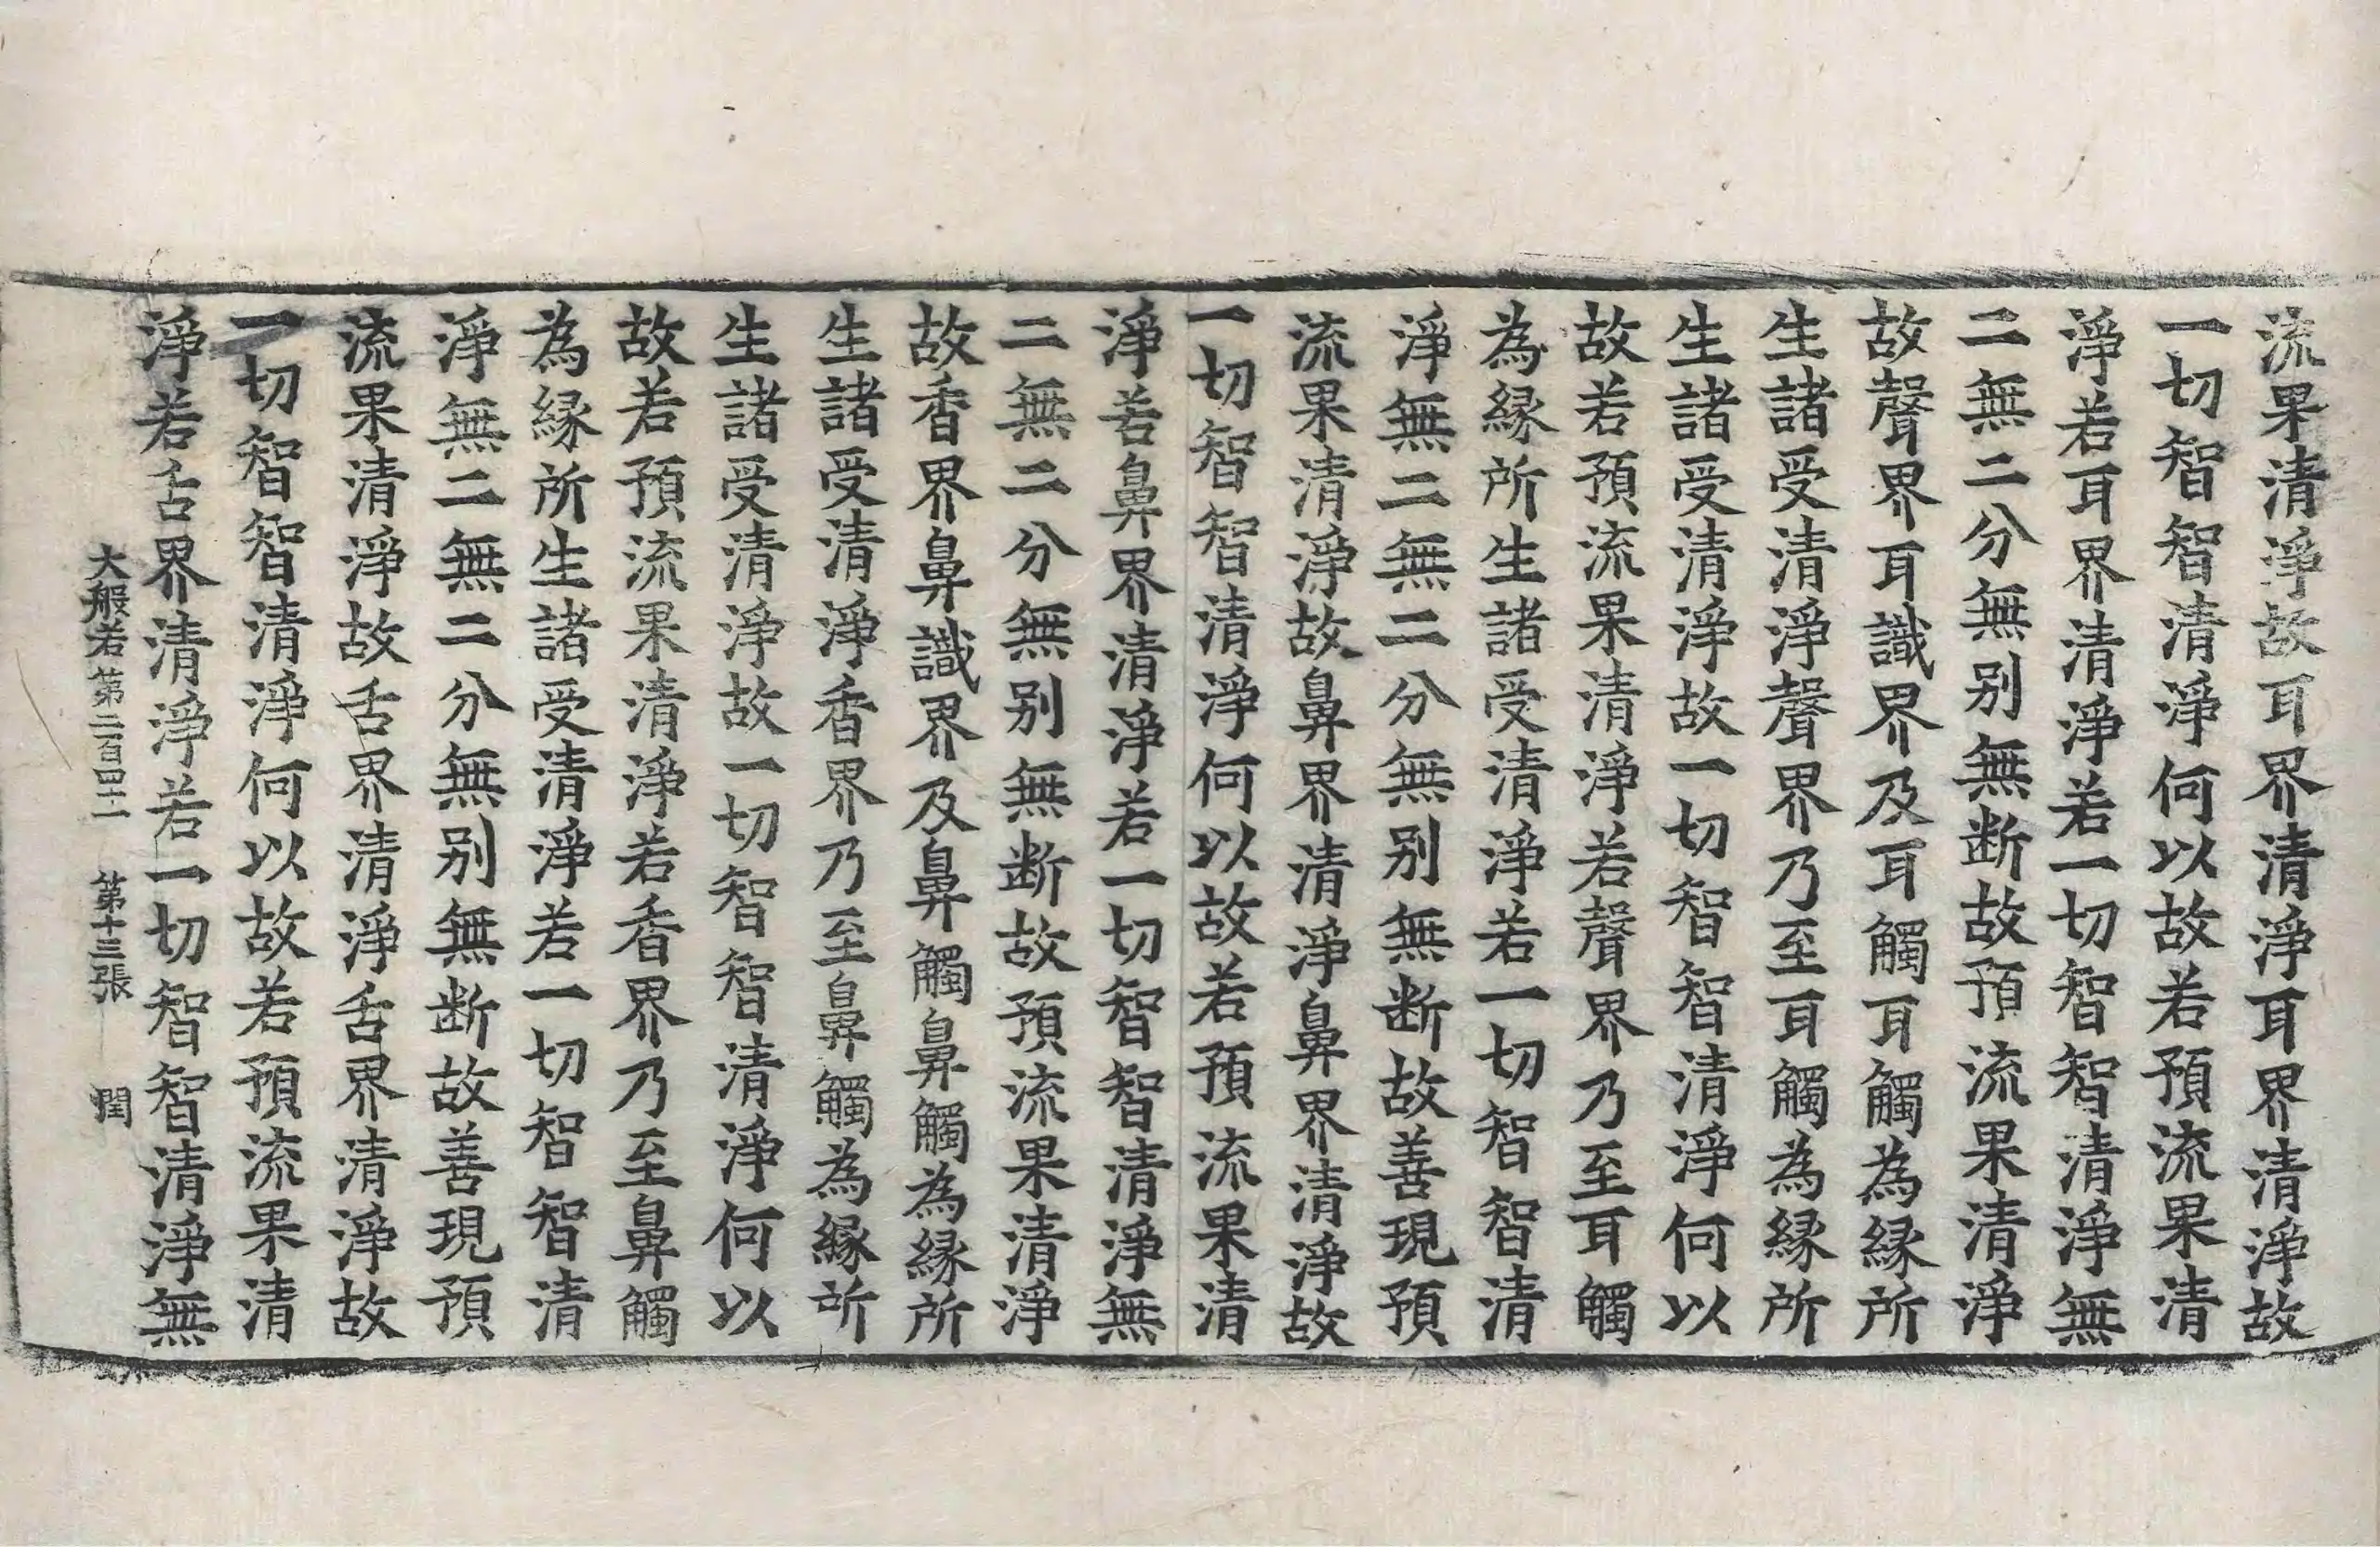 流果清淨故耳界清淨耳界清淨故
一切智智清淨何以故若預流果清
淨若耳界清淨若一切智智清淨無
二無二分無别無断故預流果清淨
故聲界耳識界及耳觸耳觸為緣所
生諸受清淨聲界乃至耳觸為緣所
生諸受清淨故一切智智清淨何以
故若預流果清淨若聲界乃至耳觸
為緣所生諸受清淨若一切智智清
淨無二無二分無别無断故善現預
流果清淨故鼻界清淨鼻界清淨故
一切智智清淨何以故若預流果清
淨若鼻界清淨若一切智智清淨無
二無二分無别無断故預流果清淨
故香界鼻識界及鼻觸鼻觸為緣所
生諸受清淨香界乃至鼻觸為緣所
生諸受清淨故一切智智清淨何以
故若預流果清淨若香界乃至鼻觸
為緣所生諸受清淨若一切智智清
淨無二無二分無别無断故善現預
流果清淨故舌界清淨舌界清淨故
一切智智清淨何以故若預流果清
淨若舌界清淨若一切智智清淨無
大般若第二百四十二 第十三張 閏